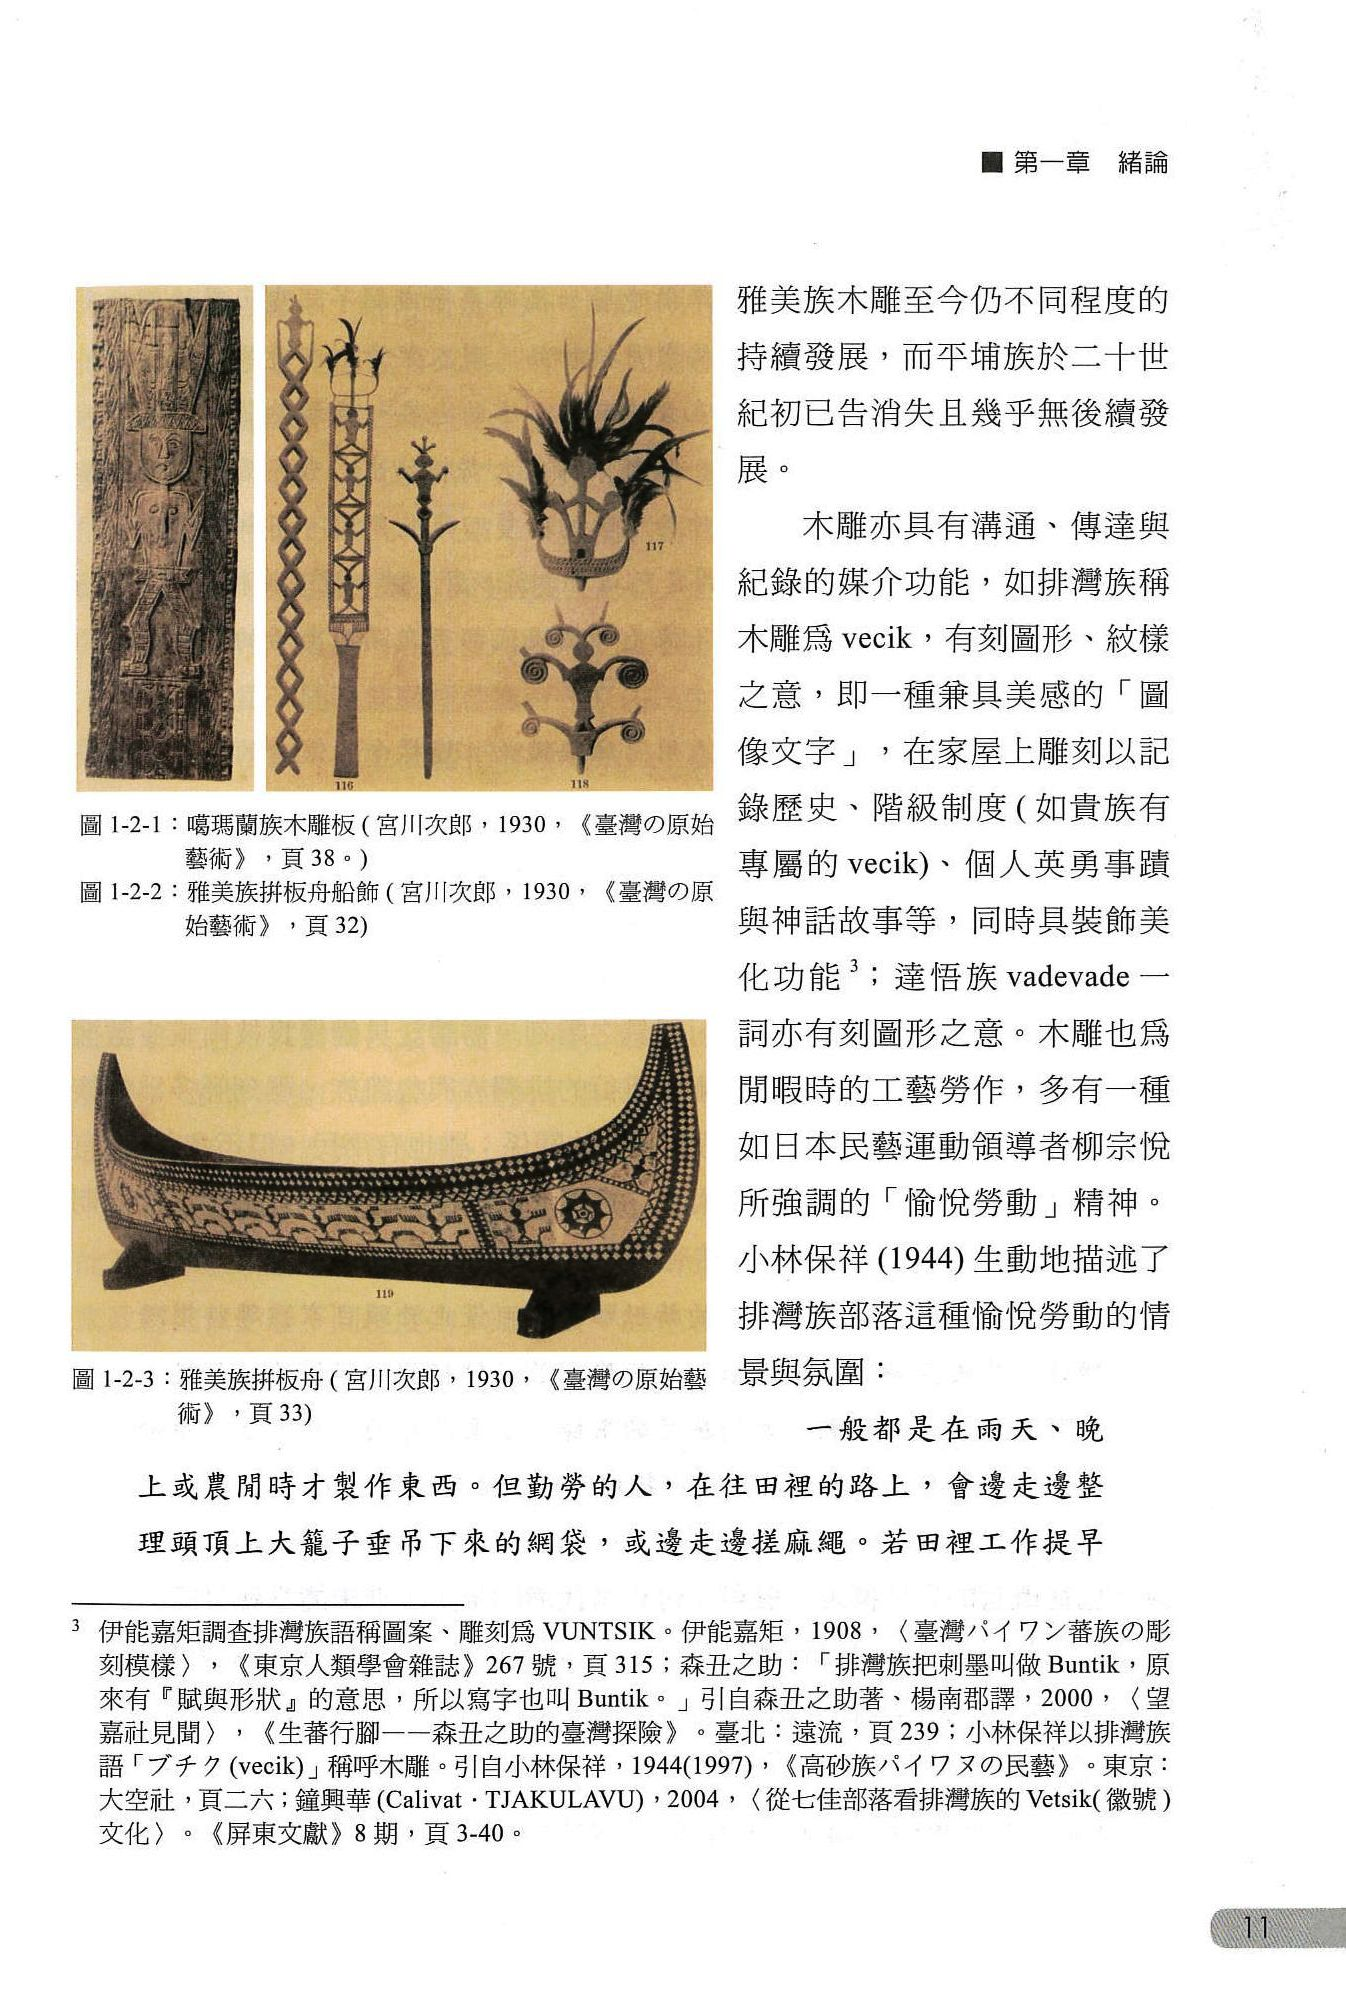 ■ 第一章　緒論
雅美族木雕至今仍不同程度的
持續發展，而平埔族於二十世
紀初已告消失且幾乎無後續發
展。
木雕亦具有溝通、傳達與
紀錄的媒介功能，如排灣族稱
木雕爲 vecik，有刻圖形、紋樣
之意，即一種兼具美感的「圖
像文字」，在家屋上雕刻以記
錄歷史、階級制度 ( 如貴族有
專屬的 vecik)、個人英勇事蹟
與神話故事等，同時具裝飾美
化功能 3；達悟族 vadevade 一
詞亦有刻圖形之意。木雕也爲
閒暇時的工藝勞作，多有一種
如日本民藝運動領導者柳宗悅
所強調的「愉悅勞動」精神。
小林保祥 (1944) 生動地描述了
排灣族部落這種愉悅勞動的情
景與氛圍：
117
116
118
圖 1-2-1：噶瑪蘭族木雕板 ( 宮川次郎，1930，《臺灣の原始
藝術》，頁 38。)
圖 1-2-2：雅美族拼板舟船飾 ( 宮川次郎，1930，《臺灣の原
始藝術》，頁 32)
119
圖 1-2-3：雅美族拼板舟 ( 宮川次郎，1930，《臺灣の原始藝
術》，頁 33)
一般都是在雨天、晚
上或農閒時才製作東西。但勤勞的人，在往田裡的路上，會邊走邊整
理頭頂上大籠子垂吊下來的網袋，或邊走邊搓麻繩。若田裡工作提早
3 伊能嘉矩調查排灣族語稱圖案、雕刻爲 VUNTSIK。伊能嘉矩，1908，〈臺灣パイワン蕃族の彫
刻模樣〉，《東京人類學會雜誌》267 號，頁 315；森丑之助：「排灣族把刺墨叫做 Buntik，原
來有『賦與形狀』的意思，所以寫字也叫 Buntik。」引自森丑之助著、楊南郡譯，2000，〈望
嘉社見聞〉，《生蕃行腳——森丑之助的臺灣探險》。臺北：遠流，頁 239；小林保祥以排灣族
語「ブチク (vecik)」稱呼木雕。引自小林保祥，1944(1997)，《高砂族パイワヌの民藝》。東京：
大空社，頁二六；鐘興華 (Calivat‧TJAKULAVU)，2004，〈從七佳部落看排灣族的 Vetsik( 徽號 )
文化〉。《屏東文獻》8 期，頁 3-40。
11